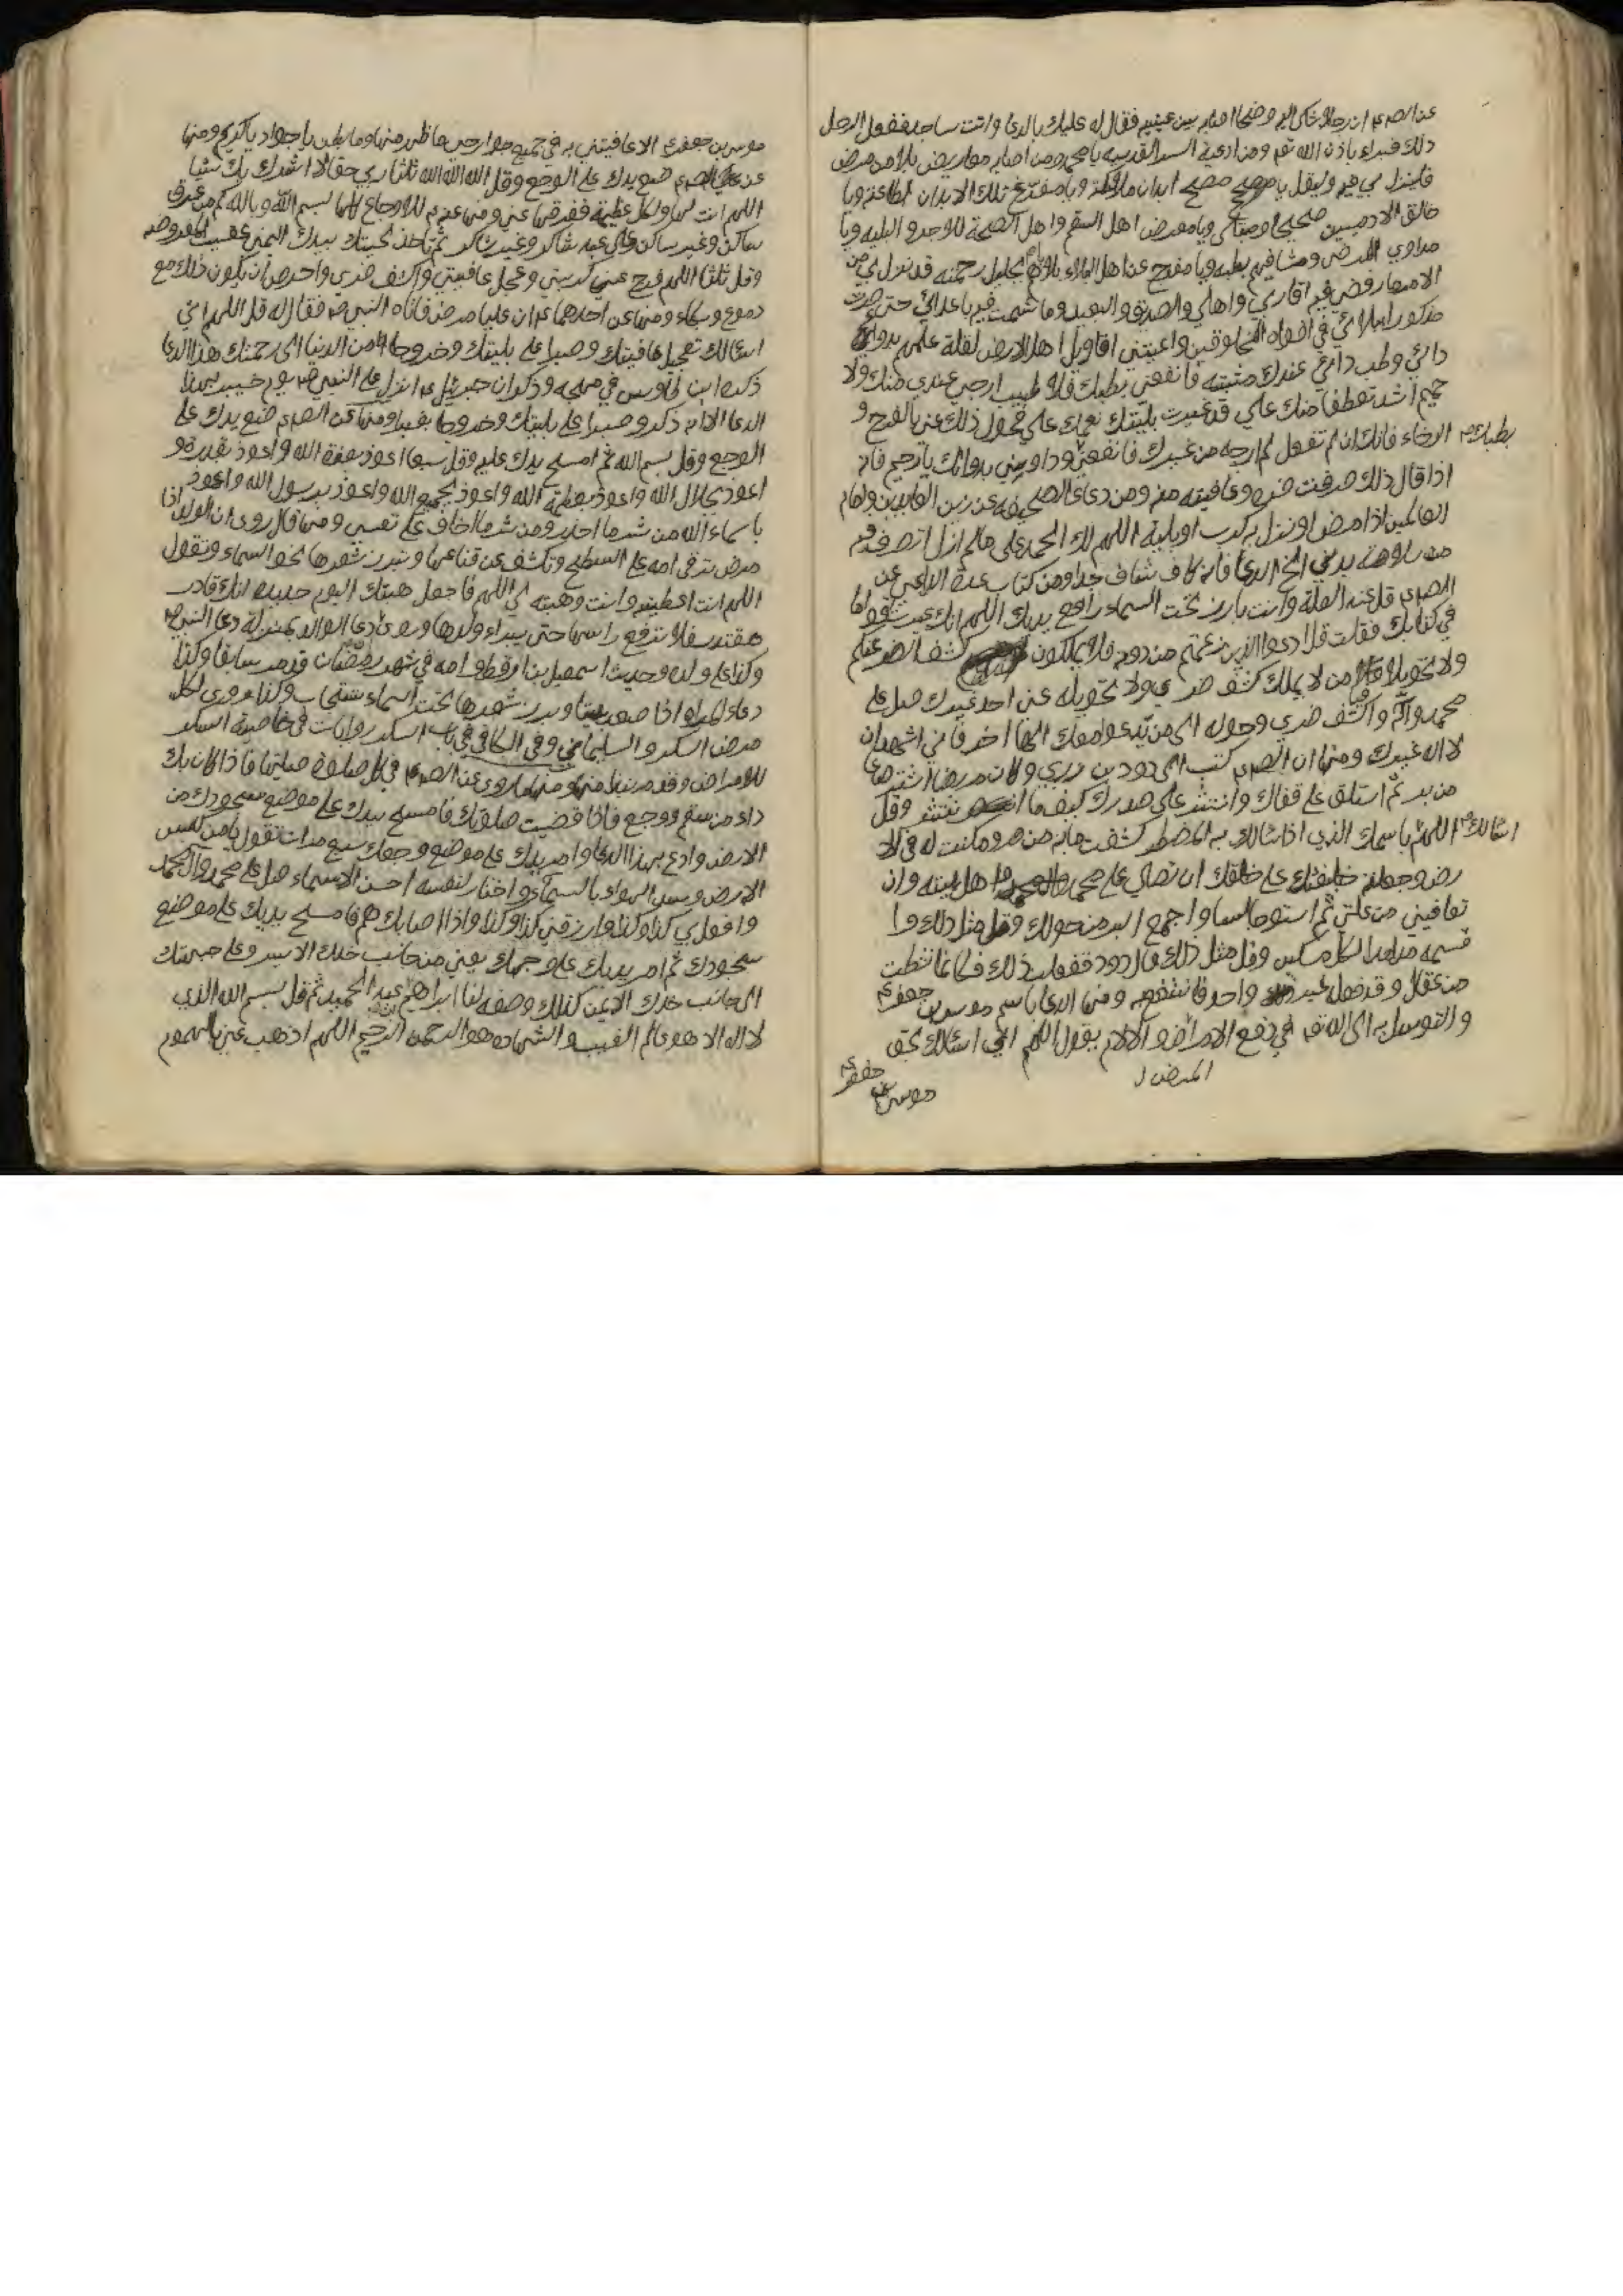 عن الصم ع ان رجلا شكى اليه وضحا اصابه بين عينيه فقال له عليك بالدعا وانت ساجد ففعل الرجل
ذلك فبراء باذن الله تعم ومن ادعية السر القدسيه يا محمد ومن اصابه معاريض بلاء من مرض
فلينزل بي فيه وليقل يا مصح ابدان ملائكته ويا مفرغ تلك الابدان لطاعته ويا
خالق الادميين صحيحا ومبتلى ويا معرض اهل السقم واهل الصحة للاجر والبليه ويا
مداوي المرضى وشافيهم بطبه ويا مفرج عن اهل البلاء بلاؤهم بجليل رحمته قد نزل بي من
الامر ما رفضني فيه اقاربي واهلي والصديق والبعيد وما شمت فيه باعدائي حتى صرت
مذكورا ببلائي في افواه المخلوقين واعيتني اقاويل اهل الارض لقلة علمهم بدواء
دائي وطب دائي عندك مثبته فانفعني بطبك فلا طبيب ارجى عندي منك ولا
حميم اشد تعطفا منك علي قد غيرت بليتك نعمك علي فحول ذلك عني بالفرج و
الرخاء فانك ان لم تفعل لم ارجه من غيرك فانفعني بطبك وداوني بدوائك يا رحيم فانه
اذا قال ذلك صرفت ضره وعافيته منه ومن دعاء الصحيفه عن زين العابدين وامام
العالمين اذا مرض او نزل به كرب او بلية اللهم لك الحمد على ما لم ازل اتصرف فيه
من سلامة بدني الخ الدعا فانه كاف شاف جدا ومن كتاب عدة الداعي عن
الصم ع قل عند العلة وانت بارز تحت السماء رافع يديك اللهم انك عيرت اقواما
في كتابك فقلت قل ادعوا الذين زعمتم من دونه فلا يملكون كشف الضر عنكم
ولا تحويلا فيا من لا يملك كشف ضري ولا تحويله عني احد غيرك صل على
محمد واله واكشف ضري وحوله الى من يدعو معك الها اخر فاني اشهد ان
لا اله غيرك ومنها ان الصم ع كتب الى دود بن زربي وكان مريضا اشتر صاعا
من بر ثم استلق على قفاك وانثره على صدرك كيف ما انتثر وقل
اللهم اني اسئالك باسمك الذي اذا سئالك به المضطر كشفت ما به من ضر ومكنت له في الا
رض وجعلته خليفتك على خلقك ان تصلي على محمد واهل بيته وان
تعافيني من علتي ثم استو جالسا واجمع البر من حولك وقل مثل ذلك وا
قسمه مدا مدا لكل مسكين وقل مثل ذلك قال دود ففعلت ذلك فكانما نشطت
من عقال وقد فعله غير واحد فانتفع به ومنها الدعا باسم موسى بن جعفر ع
والتوسل به الى الله تعم في دفع الامراض والالام يقول اللهم اني اسئالك بحق
المرض
موسى بن جعفر ع
موسى بن جعفر ع الا عافيتني به في جميع جوارحي ما ظهر منها وما بطن يا جواد يا كريم ومنها
عن الصم ع ضع يدك على الوجع وقل الله الله الله ثلثا ربي حقا لا اشرك بك شيئا
اللهم انت لها ولكل عظيمة ففرقها عني ومنها عنه ع للاوجاع كلها بسم الله وبالله كم من عرق
ساكن وغير ساكن على عبد شاكر وغير شاكر ثم تاخذ لحيتك بيدك اليمنى عقيب المفروضه
وقل ثلثا اللهم فرج عني كربتي وعجل عافيتي واكشف ضري واحرص ان يكون ذلك مع
دموع وبكاء ومنها عن احدهما ع ان عليا مرض فاتاه النبي ص فقال له قل اللهم اني
اسئالك تعجيل عافيتك وصبرا على بليتك وخروجا من الدنيا الى رحمتك هذا الدعا
ذكره ابن طاوس في مهجه وذكر ان جبرئيل ع انزل على النبي ص يوم خيبر بهذا
الدعا الا انه ذكر وصبرا على بليتك وخروجا ومنها عن الصم ع ضع يدك على
الوجع وقل بسم الله ثم امسح يدك عليه وقل سبعا اعوذ بعزة الله واعوذ بقدرة و
اعوذ بجلال الله واعوذ بعظمة الله واعوذ بجمع الله واعوذ برسول الله واعوذ
باسماء الله من شر ما احذر ومن شر ما اخاف على نفسي ومنها قال روى ان الولد اذا
مرض ترقى امه على السطح وتكشف عن قناعها وتبرز شعرها نحو السماء وتقول
اللهم انت اعطيتنيه وانت وهبته لي اللهم فاجعل هبتك اليوم جديدة انك قادر
مقتدر فلا ترفع راسها حتى يبراء ولدها وروى دعا الوالد بمنزلة دعا النبي ص
وكذا على ولده وحديث اسمعيل بن ارقط وامه في شهر رمضان قد مر سابقا وكذا
دعاء المراه اذا صعدت بيتا وبرز شعرها تحت السماء ستجاب وكذا مروي لكل
مرض السكر والسليماني وفي الكافي في باب السكر روايات في خاصية السكر
للامراض وقد مر نبذا منها ومنها ما روى عن الصم ع في كل صلوة صليتها فاذا كان بك
داء من سقم ووجع فاذا قضيت صلوتك فامسح بيدك على موضع سجودك من
الارض وادع بهذا الدعا وامر يدك على موضع وجعك سبع مرات تقول يا من كبس
الارض وسد الهواء بالسماء واختار لنفسه احسن الاسماء صل على محمد وال محمد
وافعل بي كذا وكذا وارزقني كذا وكذا واذا اصابك هم فامسح يديك على موضع
سجودك ثم امر يديك على وجهك يعني من جانب خدك الايسر وعلى جبهتك
الى جانب خدك الايمن كذلك وصفه لنا ابراهيم بن عبد الحميد ثم قل بسم الله الذي
لا اله الا هو عالم الغيب والشهادة هو الرحمن الرحيم اللهم اذهب عني بالهموم